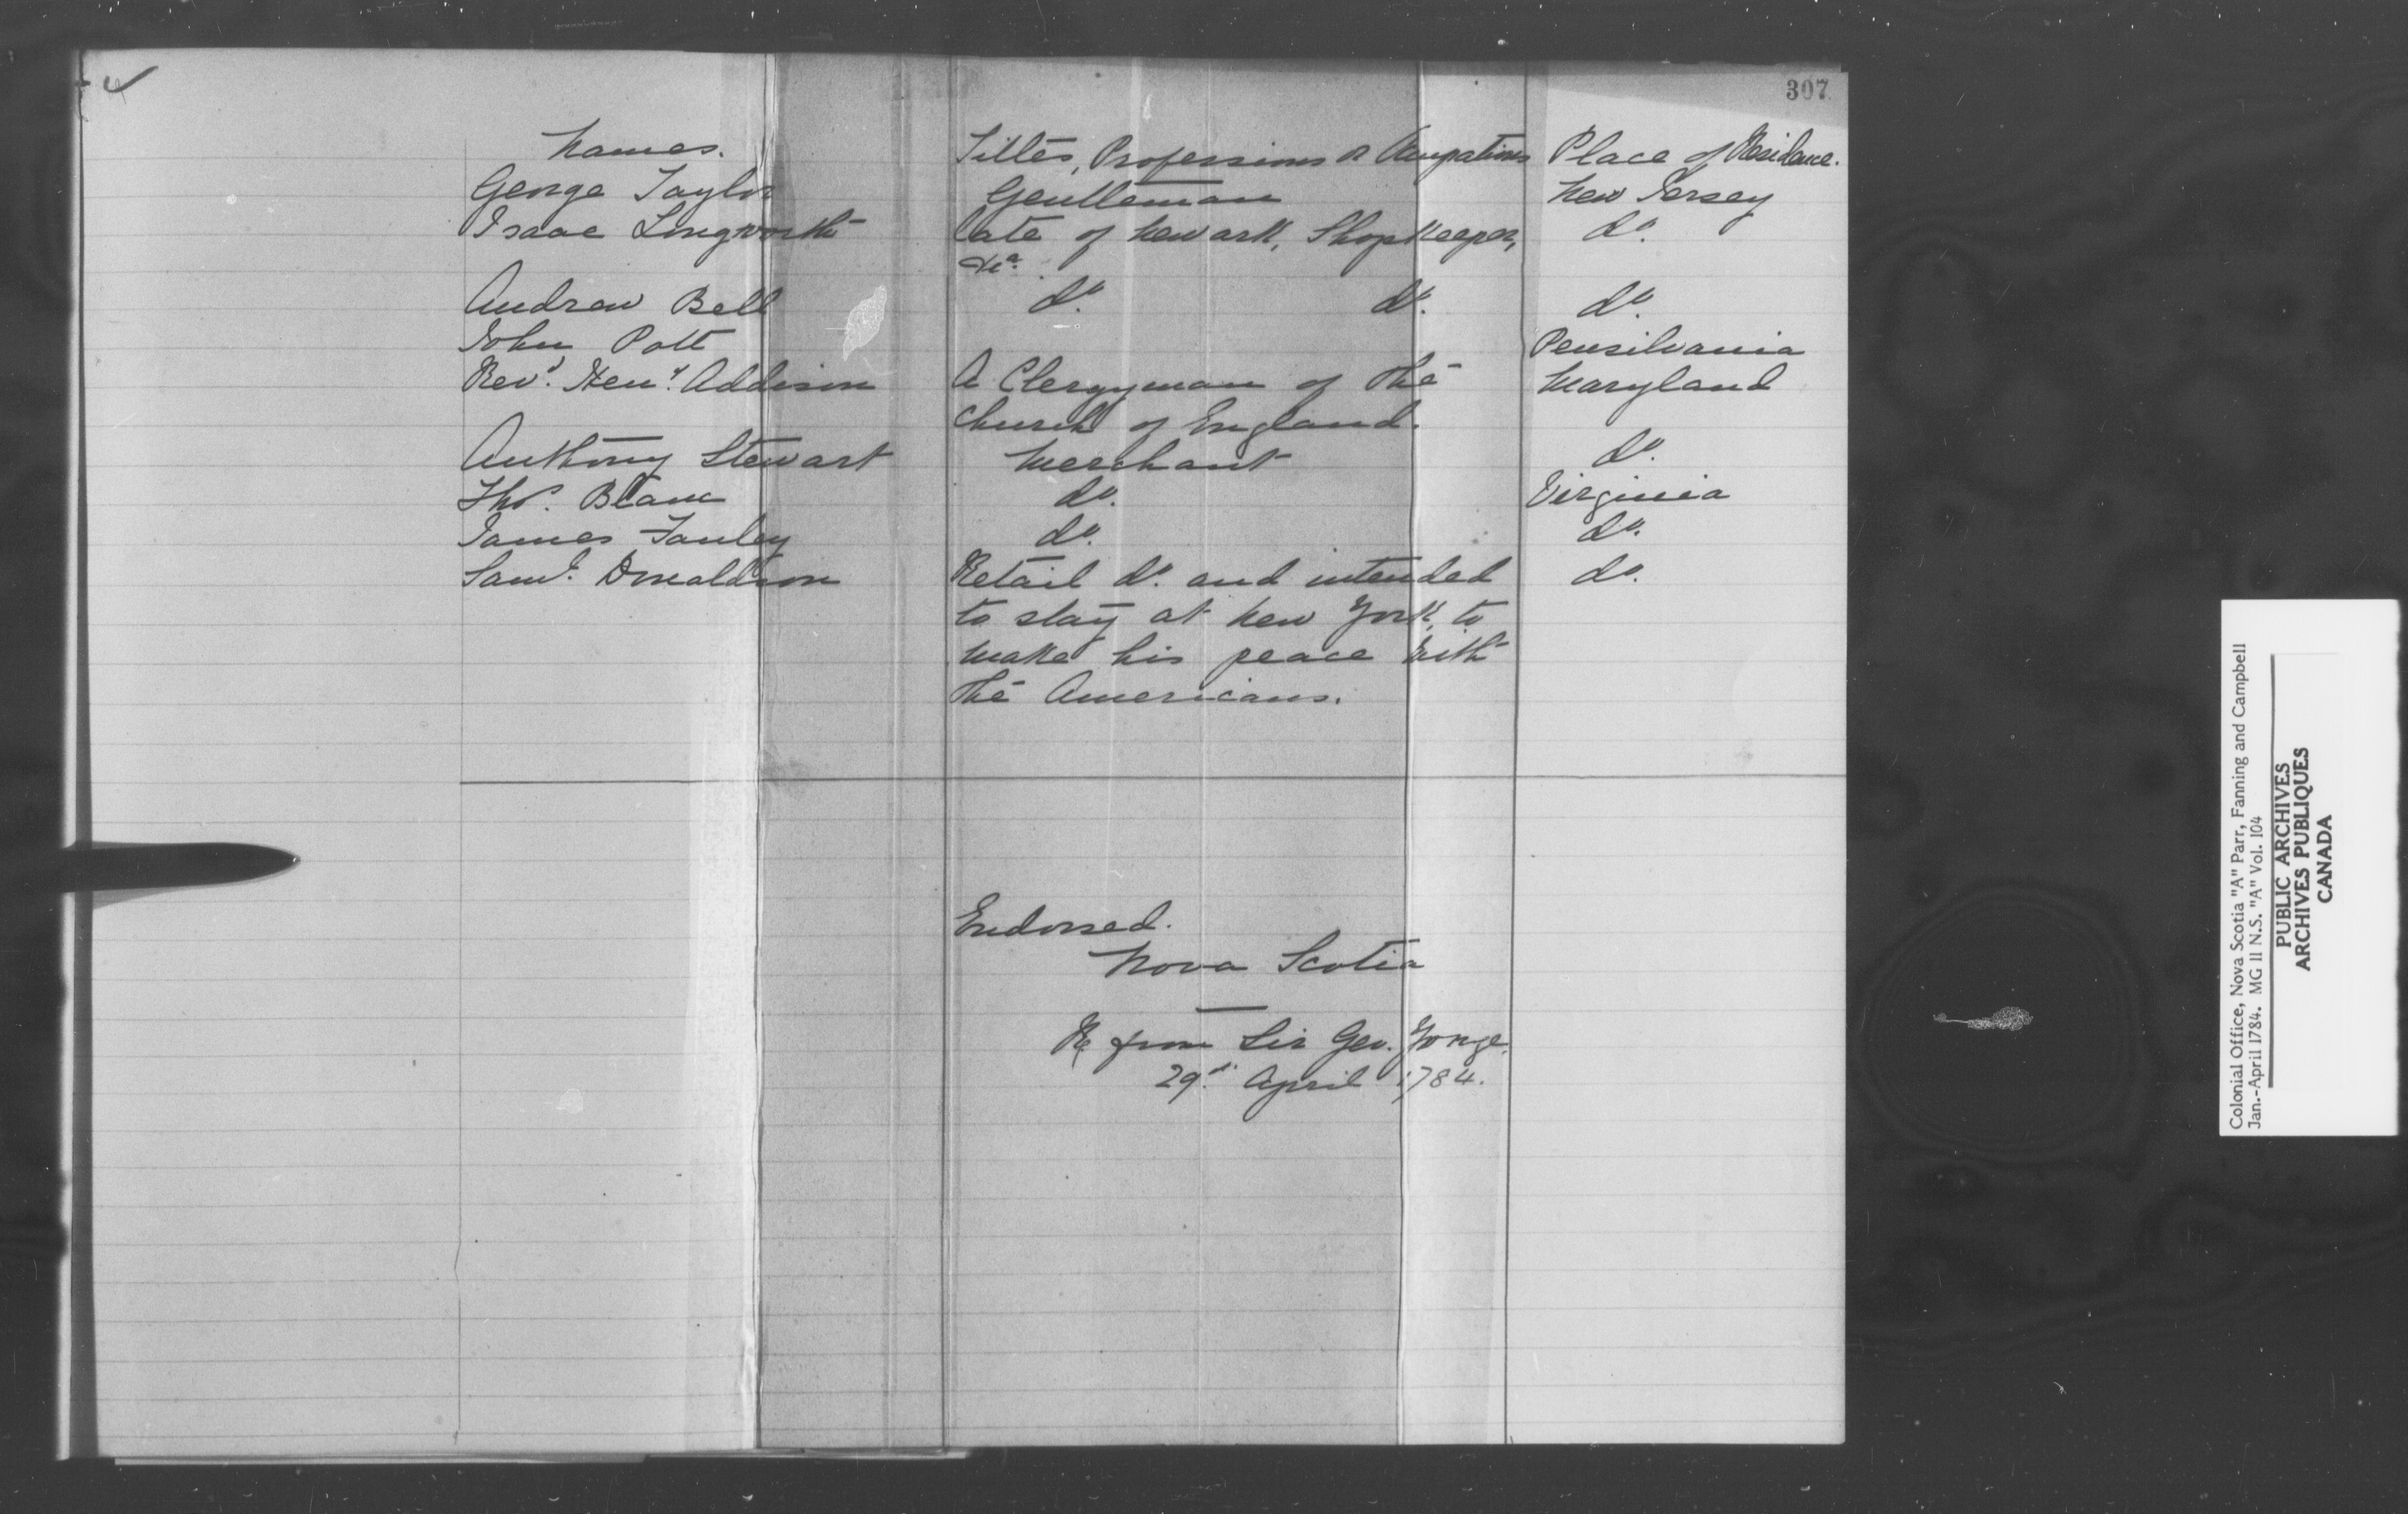 307
Names. Titles, Professions or Occupations Place of Residence.
George Taylor Gentleman New Jersey
Isaac Longworth late of Newark, Shopkeeper, do.
&ca.
Andrew Bell do. do. do.
John Pott Pensilvania
Revd. Heny. Addison A Clergyman of the Maryland
Church of England.
Anthony Stewart Merchant do.
Thos. Beam do. Virginia
James Fanley do. do.
Saml. Donaldson Retail do. and intended do.
to stay at New York, to
make his peace with
the Americans.
Endorsed.
Nova Scotia
R from Sir Geo. Yonge.
29th. April 1784.
Colonial Office, Nova Scotia "A" Parr, Fanning and Campbell
Jan.-April 1784. MG 11 N.S. "A" Vol. 104
PUBLIC ARCHIVES
ARCHIVES PUBLIQUES
CANADA